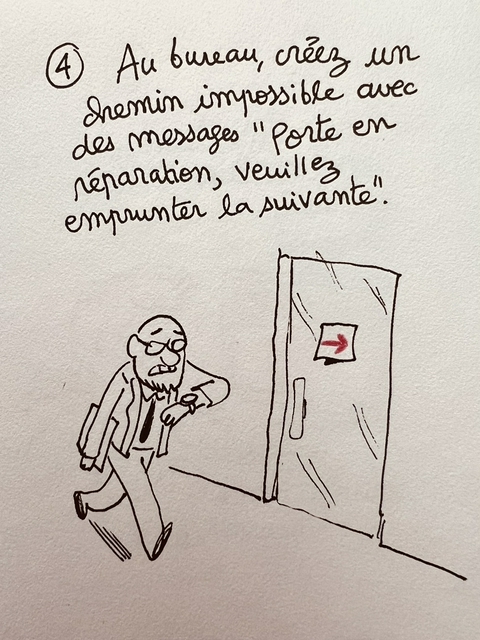 ④ Au bureau, créez un
chemin impossible avec
des messages "Porte en
réparation, veuillez
emprunter la suivante".